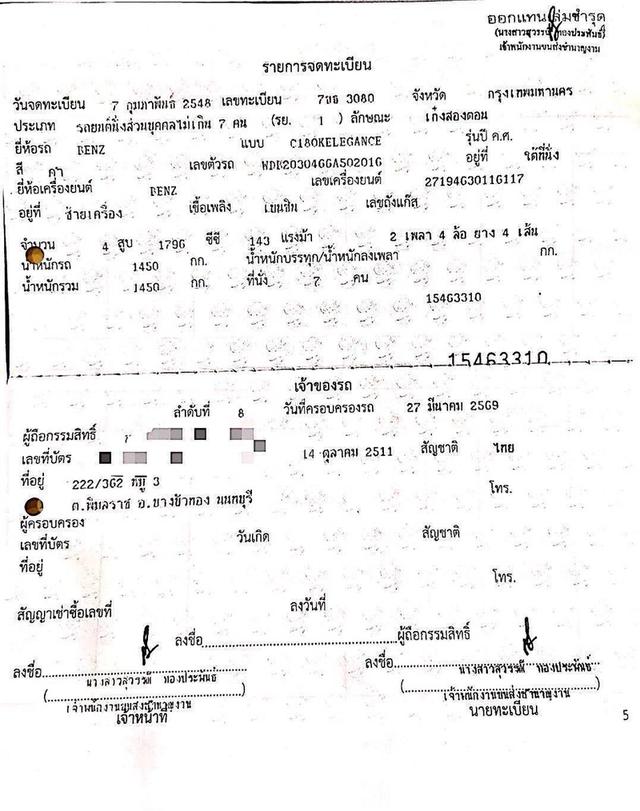 ออกแทนเล่มชำรุด
(นางสาวสุวรรณี ทองประพันธ์)
เจ้าพนักงานขนส่งชำนาญงาน
รายการจดทะเบียน
วันจดทะเบียน 7 กุมภาพันธ์ 2548 เลขทะเบียน 3080 จังหวัด กรุงเทพมหานคร
ประเภท รถยนต์นั่งส่วนบุคคลไม่เกิน 7 คน (รย. 1 ) ลักษณะ เก๋งสองตอน
ยี่ห้อรถ BENZ แบบ C180KELEGANCE รุ่นปี ค.ศ.
สี เลขตัวรถ อยู่ที่ ใต้ที่นั่ง
ยี่ห้อเครื่องยนต์ BENZ เลขเครื่องยนต์ 27194630116117
อยู่ที่ ซ้ายเครื่อง เชื้อเพลิง เบนซิน เลขถังแก๊ส
จำนวน 4 สูบ 1796 ซีซี 143 แรงม้า 2 เพลา 4 ล้อ ยาง 4 เส้น
น้ำหนักรถ 1450 กก. น้ำหนักบรรทุก/น้ำหนักลงเพลา กก.
น้ำหนักรวม 1450 กก. ที่นั่ง 7 คน
15463310
15463310
เจ้าของรถ
ลำดับที่ 8 วันที่ครอบครองรถ 27 มีนาคม 2569
ผู้ถือกรรมสิทธิ์
เลขที่บัตร 14 ตุลาคม 2511 สัญชาติ ไทย
ที่อยู่ 222/362 หมู่ 3 โทร.
ต.พิมลราช อ.บางบัวทอง นนทบุรี
ผู้ครอบครอง
เลขที่บัตร วันเกิด สัญชาติ
ที่อยู่
โทร.
สัญญาเช่าซื้อเลขที่ ลงวันที่
ลงชื่อ ผู้ถือกรรมสิทธิ์
ลงชื่อ ลงชื่อ
นางสาวสุวรรณี ทองประพันธ์ นางสาวสุวรรณี ทองประพันธ์
เจ้าพนักงานขนส่งชำนาญงาน เจ้าพนักงานขนส่งชำนาญงาน
เจ้าหน้าที่ นายทะเบียน
5